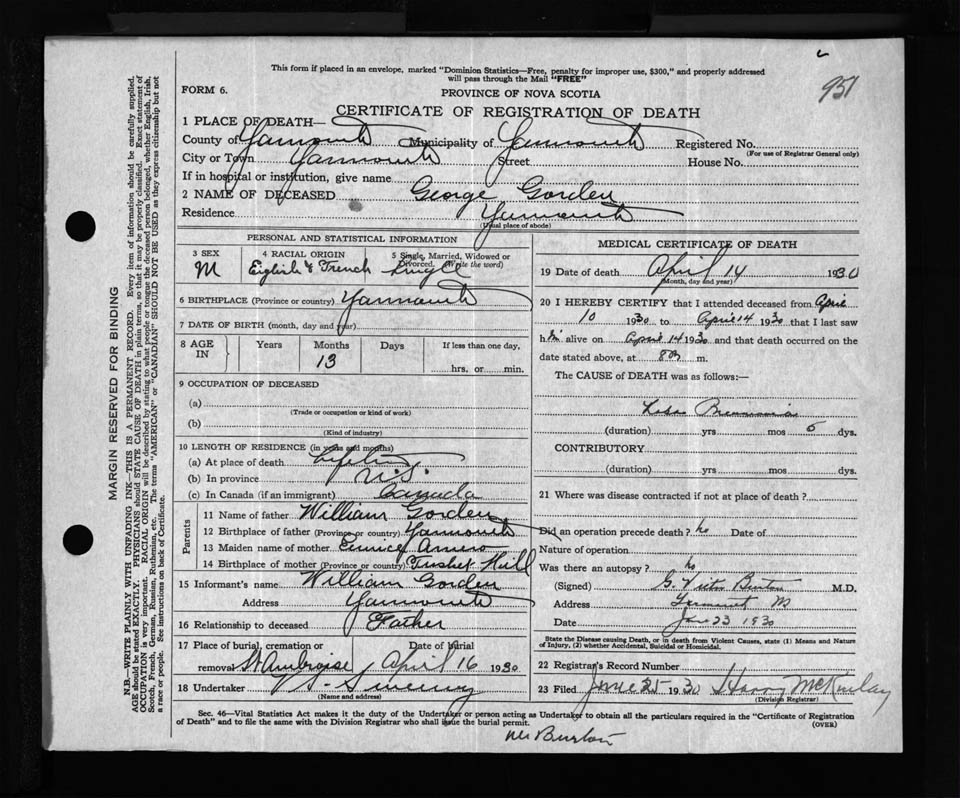 951
This form if placed in an envelope, marked "Dominion Statistics—Free, penalty for improper use, $300," and properly addressed
will pass through the Mail "FREE"
FORM 6.
PROVINCE OF NOVA SCOTIA
CERTIFICATE OF REGISTRATION OF DEATH
1 PLACE OF DEATH—
County of Yarmouth Municipality of Yarmouth Registered No.
(For use of Registrar General only)
City or Town Yarmouth Street House No.
If in hospital or institution, give name
2 NAME OF DECEASED George Gorden
Residence Yarmouth
(Usual place of abode)
PERSONAL AND STATISTICAL INFORMATION
3 SEX 4 RACIAL ORIGIN 5 Single, Married, Widowed or
Divorced. (Write the word)
M English & French Single
6 BIRTHPLACE (Province or country) Yarmouth
7 DATE OF BIRTH (month, day and year)
8 AGE IN Years Months Days If less than one day,
13 hrs. or min.
9 OCCUPATION OF DECEASED
(a)
(Trade or occupation or kind of work)
(b)
(Kind of industry)
10 LENGTH OF RESIDENCE (in years and months)
(a) At place of death Life
(b) In province N.S.
(c) In Canada (if an immigrant) Canada
Parents
11 Name of father William Gorden
12 Birthplace of father (Province or country) Yarmouth
13 Maiden name of mother Eunice Amiro
14 Birthplace of mother (Province or country) Tusket Hill
15 Informant's name William Gorden
Address Yarmouth
16 Relationship to deceased Father
17 Place of burial, cremation or Date of burial
removal St Ambroise April 16 1930
18 Undertaker Sweeny
(Name and address)
MEDICAL CERTIFICATE OF DEATH
19 Date of death April 14 1930
(Month, day and year)
20 I HEREBY CERTIFY that I attended deceased from April
10 1930 to April 14 1930 that I last saw
him alive on April 14 1930 and that death occurred on the
date stated above, at 8 m.
The CAUSE of DEATH was as follows:—
Lobar Pneumonia
(duration) yrs mos 5 dys.
CONTRIBUTORY
(duration) yrs mos dys.
21 Where was disease contracted if not at place of death?
Did an operation precede death? no Date of
Nature of operation
Was there an autopsy? no
(Signed) G. Victor Burton M.D.
Address Yarmouth
Date June 23 1930
State the Disease causing Death, or in death from Violent Causes, state (1) Means and Nature
of Injury, (2) whether Accidental, Suicidal or Homicidal.
22 Registrar's Record Number
23 Filed June 25 1930 Harry McKinlay
(Division Registrar)
Sec. 46—Vital Statistics Act makes it the duty of the Undertaker or person acting as Undertaker to obtain all the particulars required in the "Certificate of Registration
of Death" and to file the same with the Division Registrar who shall issue the burial permit. (OVER)
Burton
MARGIN RESERVED FOR BINDING
N.B.—WRITE PLAINLY WITH UNFADING INK—THIS IS A PERMANENT RECORD. Every item of information should be carefully supplied.
AGE should be stated EXACTLY. PHYSICIANS should STATE CAUSE OF DEATH in plain terms, so that it may be properly classified. Exact statement of
OCCUPATION is very important. RACIAL ORIGIN will be described by stating to what people or tongue the deceased person belonged, whether English, Irish,
Scotch, French, German, Russian, Ruthenian, etc. The terms "AMERICAN" or "CANADIAN" SHOULD NOT BE USED as they express citizenship but not
a race or people. See instructions on back of Certificate.